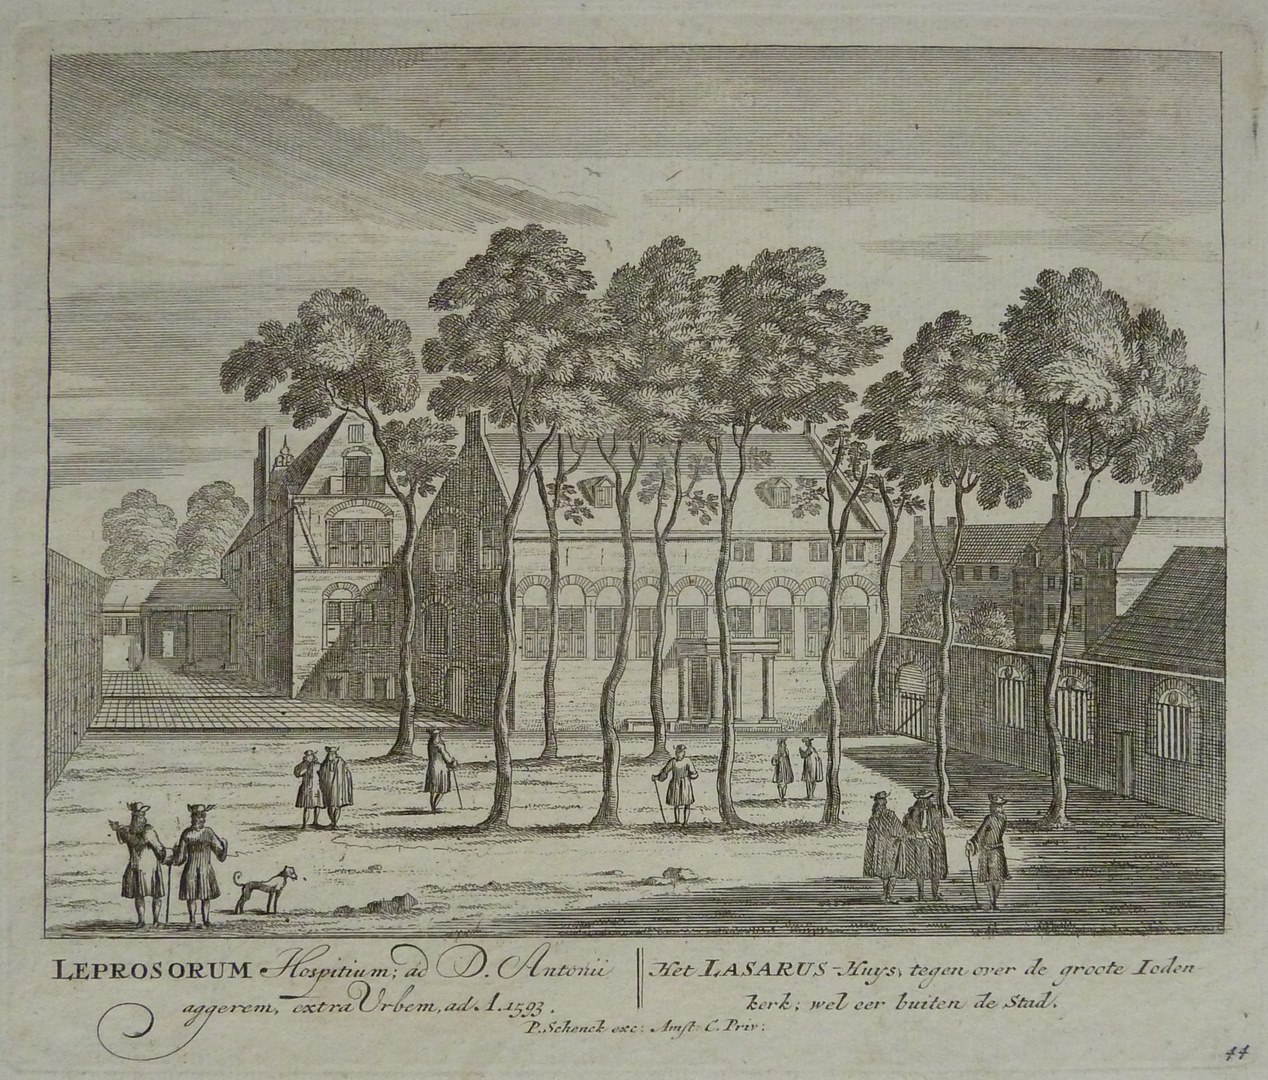 LEPROSORUM Hospitium; ad D. Antonii
aggerem, extra Urbem, ad. A. 1593.
Het LASARUS-Huys, tegen over de groote Ioden
kerk; wel eer buiten de Stad.
P. Schenck exc: Amst: C. Priv:
44